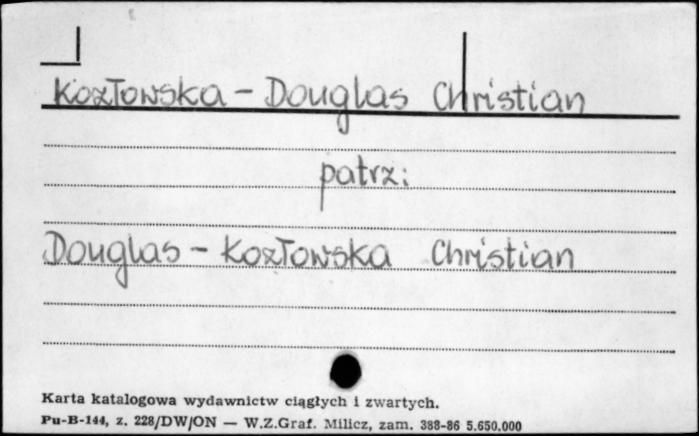 Kozłowska - Douglas Christian
patrz:
Douglas - Kozłowska Christian
Karta katalogowa wydawnictw ciągłych i zwartych.
Pu-B-144, z. 228/DW/ON — W.Z.Graf. Milicz, zam. 388-86 5.650.000